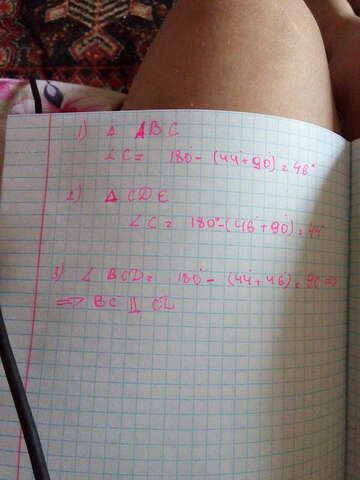 1) Δ ABC
∠C = 180° - (44° + 90°) = 46°
2) Δ CDE
∠C = 180° - (46° + 90°) = 44°
3) ∠ BCD = 180° - (44° + 46°) = 90 ⇒
⇒ BC ⊥